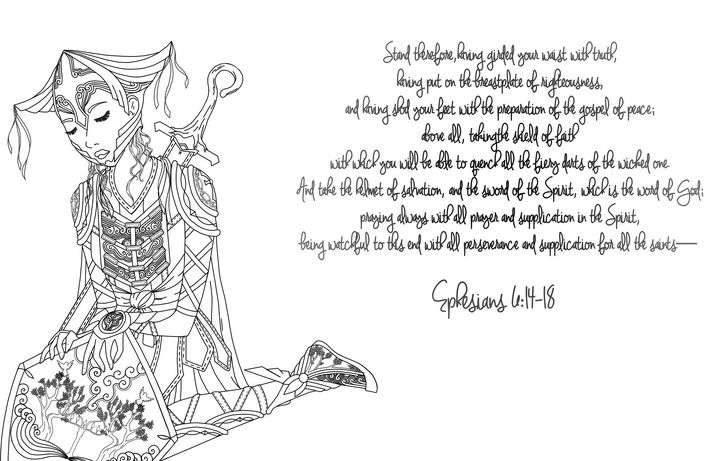 Stand therefore, having girded your waist with truth,
having put on the breastplate of righteousness,
and having shod your feet with the preparation of the gospel of peace;
above all, takingthe shield of faith
with which you will be able to quench all the fiery darts of the wicked one.
And take the helmet of salvation, and the sword of the Spirit, which is the word of God;
praying always with all prayer and supplication in the Spirit,
being watchful to this end with all perseverance and supplication for all the saints—
Ephesians 6:14-18